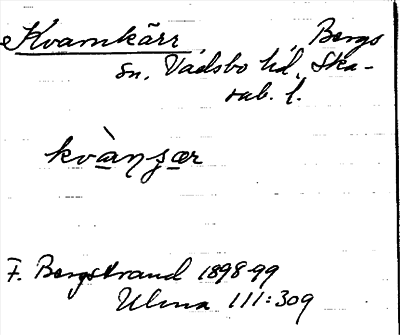 Kvarnkärr, Bergs
sn, Vadsbo hd, Ska-
rab. l.
kvàɳʂær
F. Bergstrand 1898-99
Ulma 111:309